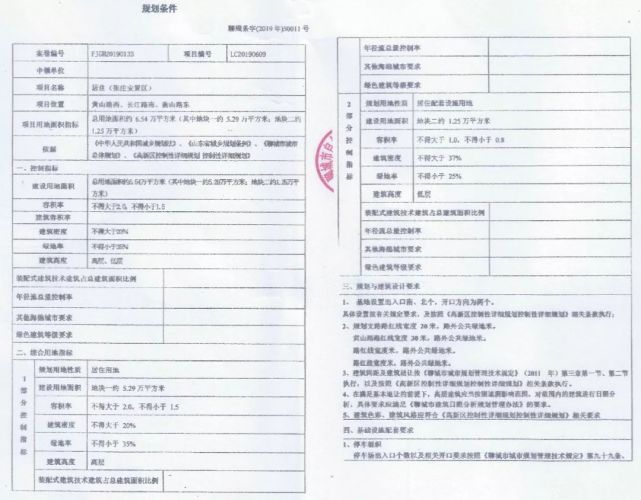 规划条件
聊规条字(2019年)50011号
案卷编号 FJGH20190133 项目编号 LC20190609
申领单位
项目名称 居住（张庄安置区）
项目位置 黄山路西、长江路南、衡山路东
项目用地面积指标 总用地面积约 6.54 万平方米（其中地块一约 5.29 万平方米；地块二约
1.25 万平方米）
依据 《中华人民共和国城乡规划法》、《山东省城乡规划条例》、《聊城市城市
总体规划》、《高新区控制性详细规划 控制性详细规划》
一、控制指标
建设用地面积 总用地面积约6.54万平方米（其中地块一约5.29万平方米；地块二约1.25万平
方米）
容积率 不得大于2.0，不得小于1.5
建筑容积率
建筑密度 不得大于20%
绿地率 不得小于35%
建筑高度 高层、低层
装配式建筑技术建筑占总建筑面积比例
年径流总量控制率
其他海绵城市要求
绿色建筑等级要求
二、组合用地指标
1部分控制指标
规划用地性质 居住用地
建设用地面积 地块一约 5.29 万平方米
容积率 不得大于 2.0，不得小于 1.5
建筑密度 不得大于 20%
绿地率 不得小于 35%
建筑高度 高层
装配式建筑技术建筑占总建筑面积比例
年径流总量控制率
其他海绵城市要求
绿色建筑等级要求
2部分控制指标
规划用地性质 居住配套设施用地
建设用地面积 地块二约 1.25 万平方米
容积率 不得大于 1.0，不得小于 0.8
建筑密度 不得大于 37%
绿地率 不得小于 25%
建筑高度 低层
装配式建筑技术建筑占总建筑面积比例
年径流总量控制率
其他海绵城市要求
绿色建筑等级要求
三、规划与建筑设计要求
1、基地设置出入口南、北个，开口方向为两个。
具体设置按有关规定要求，及按照《高新区控制性详细规划控制性详细规划》相关条款执行；
2、规划支路路红线宽度 20 米，路外公共绿地米。
黄山路路红线宽度 30 米，路外公共绿地米。
路红线宽度米，路外公共绿地米。
路红线宽度米，路外公共绿地米。
3、建筑间距及建筑退让按《聊城市城市规划管理技术规定》（2011 年）第三章第一节、第二节
执行，以及按照《高新区控制性详细规划控制性详细规划》相关条款执行。
4、在满足基本地让的前提下，高层建筑应当按照遮阴影响范围，对范围内的建筑进行日照分
析，具体要求应满足《聊城市建筑日照分析规划管理办法》的要求。
5、建筑色彩、建筑风格应符合《高新区控制性详细规划控制性详细规划》相关要求
四、基础设施配套要求
1、停车组织
停车场出入口个数以及相关开口要求按照《聊城市城市规划管理技术规定》第九十九条、